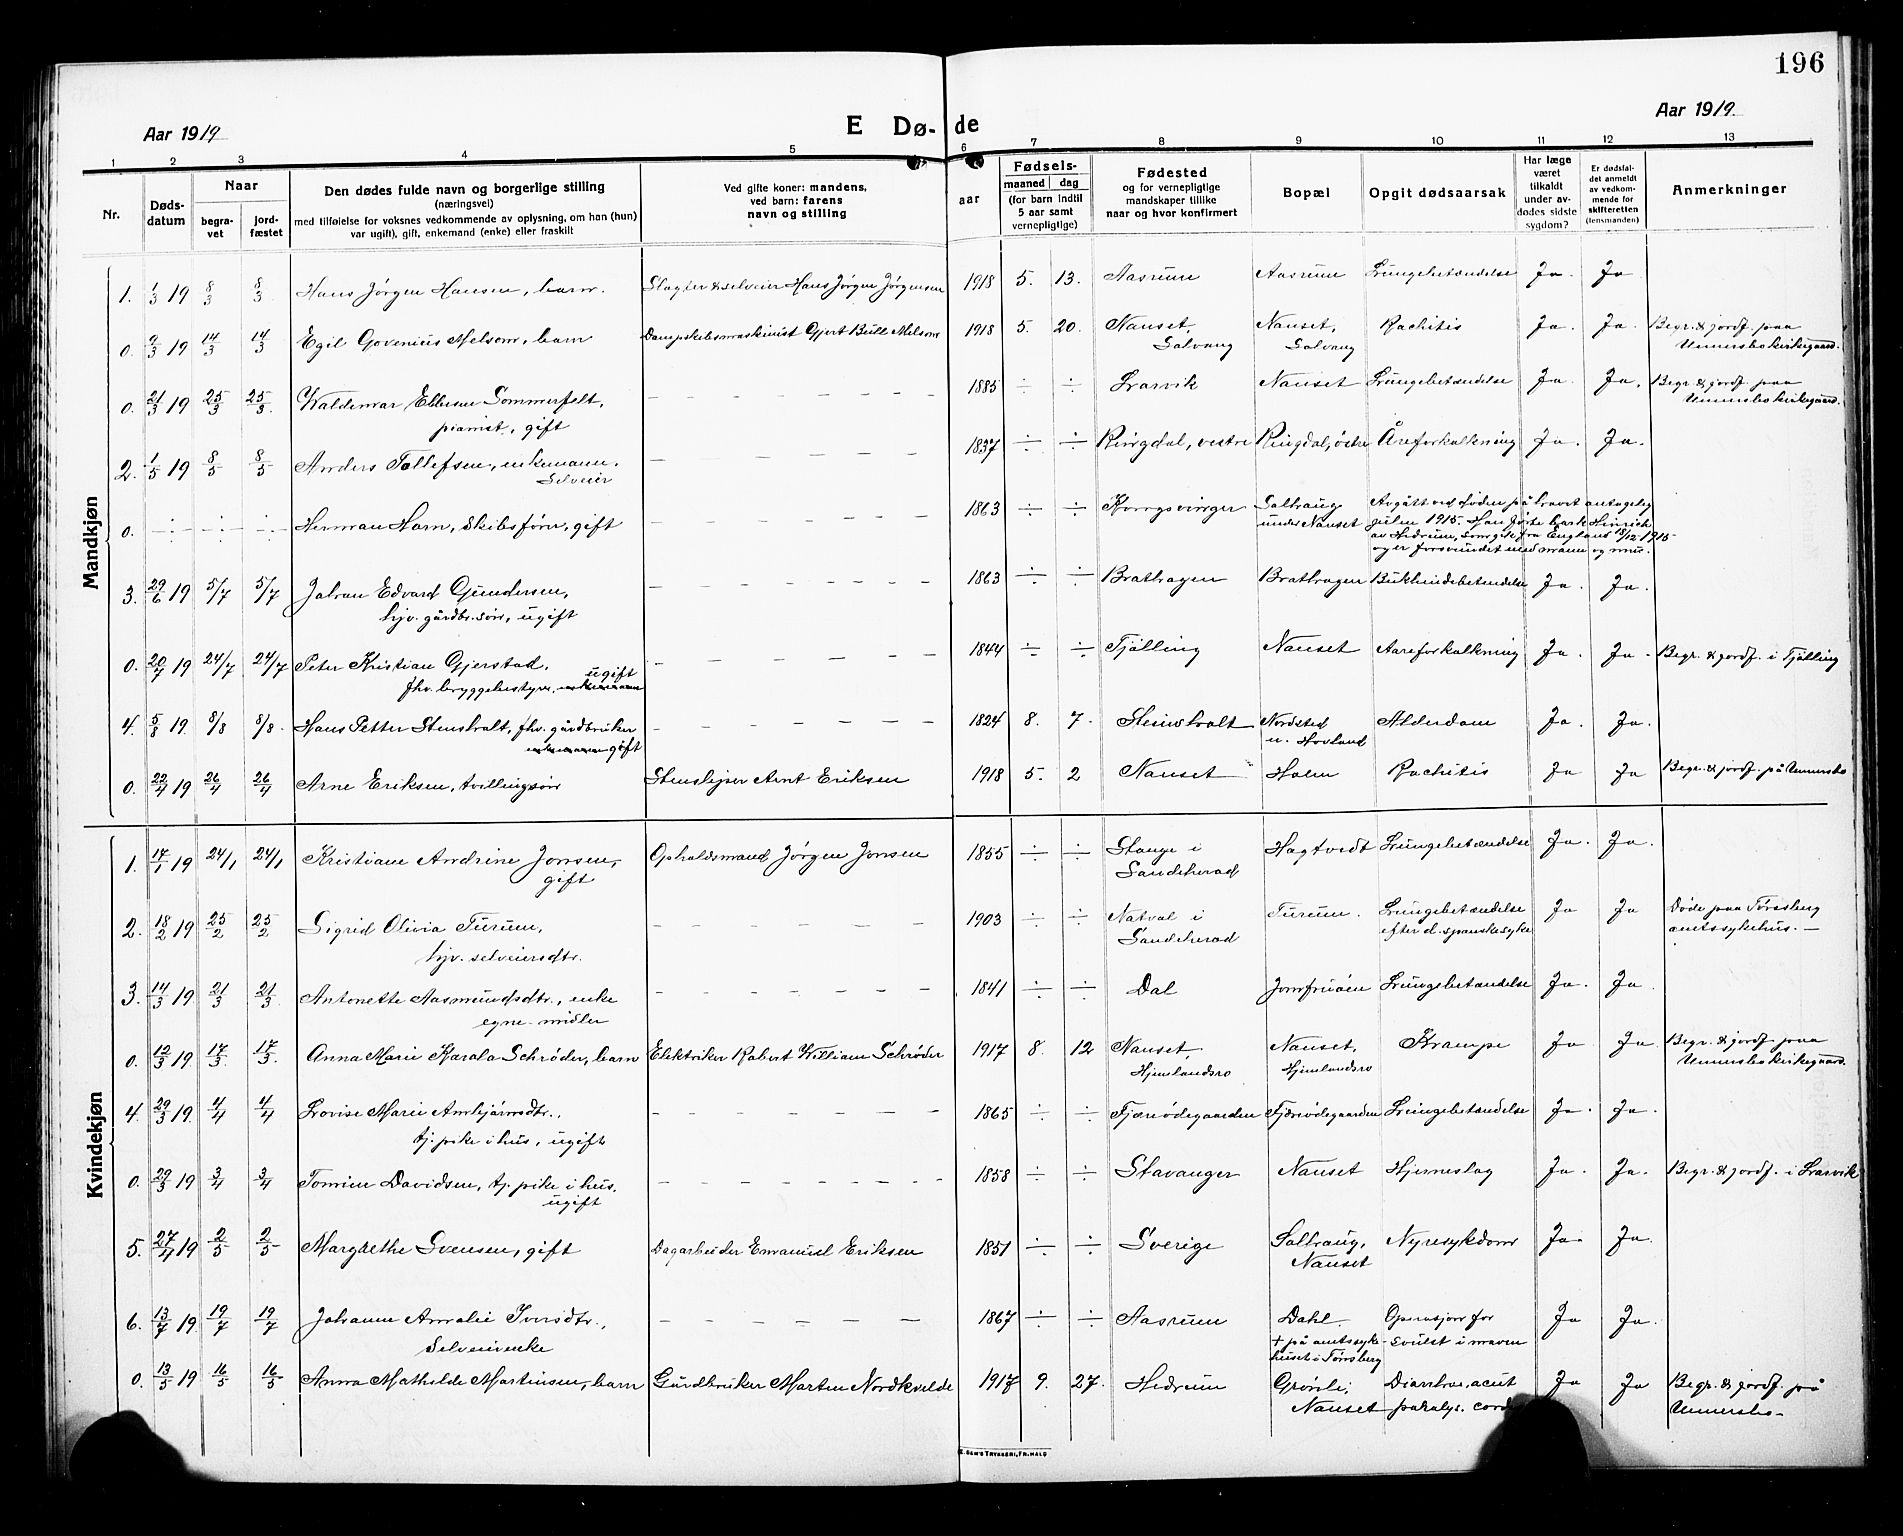 196
Aar 1919
E Dø-de
Aar 1919.
1 2 3 4 5 6 7 8 9 10 11 12 13
Nr.
Døds-datum
Naar
begra-vet
jord-fæstet
Den dødes fulde navn og borgerlige stilling
(næringsvei)
med tilføielse for voksnes vedkommende av oplysning, om han (hun)
var ugift), gift, enkemand (enke) eller fraskilt
Ved gifte koner: mandens,
ved barn: farens
navn og stilling
aar
Fødsels-
maaned dag
(for barn indtil
5 aar samt
vernepligtige)
Fødested
og for vernepligtige
mandskaper tillike
naar og hvor konfirmert
Bopæl
Opgit dødsaarsak
Har læge
været
tilkaldt
under av-
dødes sidste
sygdom?
Er dødsfal-
det anmeldt
av vedkom-
mende for
skifteretten
(lensmanden)
Anmerkninger
Mandkjøn
1. 1/3 19 8/3 8/3 Hans Jørgen Hansen, barn. Slagter & selveier Hans Jørgen Jørgensen 1918 5. 13. Aasrum Aasrum Lungebetændelse Ja. Ja
0. 9/3 19 14/3 14/3 Egil Govenius Melsom, barn Dampskibsmaskinist Gjert Bull Melsom 1918 5. 20. Nanset, Nanset, Rachitis Ja. Ja. Begr. & jordf. paa
Solvang Solvang Undersbo kirkegaard.
0. 21/3 19 25/3 25/3 Waldemar Ebbesen Sommerfelt, 1885 ÷ ÷ Larvik Nanset Lungebetændelse Ja. Ja. Begr. & jordf. paa
pianist, gift Undersbo kirkegaard.
2. 1/5 19 8/5 8/5 Anders Tollefsen, enkemann. 1837 ÷ ÷ Ringdal, vestre Ringdal, östre Åreforkalkning Ja. Ja.
Selveier
0. ÷ ÷ ÷ Herman Horn, Skibsfører, gift 1863 ÷ ÷ Kongsvinger Solhaug Avgått ved døden på havet antagelig
under Nanset julen 1915. Han førte bark Hinrich
av Hedrum, som gik fra England 13/12 1915
og er forsvundet med mann og mus.
3. 29/6 19 5/7 5/7 Johan Edvard Gundersen, 1863 ÷ ÷ Brathagen Brathagen Bukhindebetændelse Ja. Ja.
hjv. gårdbr. søn, ugift
0. 20/7 19 24/7 24/7 Peter Kristian Gjerstad, ugift 1844 ÷ ÷ Tjölling Nanset Aareforkalkning Ja. Ja. Begr. & jordf. i Tjölling
fhv. bryggebestyrer, enkemann
4. 5/8 19. 8/8 8/8. Hans Petter Stensholt, fhv. gårdbruker 1824 8. 7. Stensholt Nordsted Alderdom Ja. Ja.
enkemann gift u. Hovland
0. 22/4 19 26/4 26/4 Arne Eriksen, tvillingsön Stenslejper Arnt Eriksen 1918 5. 2 Nanset Holm Rachitis Ja Ja Begr. & jordf. på Undersbo
Kvindekjøn
1. 17/1 19 24/1 24/1 Kristiane Andrine Jonsen, Opholdsmand Jørgen Jonsen 1855 ÷ ÷ Stange i Hagtvedt Lungebetændelse Ja. Ja.
gift Sandeherad
2. 18/2 19 25/2 25/2 Sigrid Olivia Furum, 1903 ÷ ÷ Natval i Furum. Lungebetændelse Ja Ja Døde paa Tønsberg
hjv. selveiersdtr. Sandeherad efter d. spanske syke amtssykehus. —
3. 14/3 19 21/3 21/3 Antonette Aasmundsdtr., enke 1841 ÷ ÷ Dal Jomfruöen Lungebetændelse Ja. Ja.
egne midler
0. 12/3 19 17/3. 17/3. Anna Marie Karala Schrøder, barn Elektriker Robert William Schrøder 1917 8. 12 Nanset, Nanset, Krampe Ja Ja. Begr. & jordf. paa
Hjemlandsro Hjemlandsro Undersbo kirkegaard.
4. 29/3 19. 4/4 4/4 Lovise Marie Arnbjørnsdtr., 1865 ÷ ÷ Fjæreödegaarden Fjæreödegaarden Lungebetændelse Ja. Ja.
tj. pike i hus, ugift
0. 29/3 19 3/4 3/4 Tomine Davidsen, tj. pike i hus. 1858 ÷ ÷ Stavanger Nanset Hjerneslag Ja. Ja. Begr. & jordf. i Larvik
ugift
5. 27/4 19 2/5 2/5 Margrethe Svensen, gift Dagarbeider Emanuel Eriksen 1851 ÷ ÷ Sverige Solhaug, Nyresykdom Ja. Ja.
Nanset
6. 13/7 19. 19/7 19/7 Johanne Amalie Iversdtr., 1867 ÷ ÷ Aasrum Dahl. Operasjon for Ja Ja.
Selveierenke + på amtssyke- svulst i maven
huset i Tønsberg
0. 13/5 19 16/5 16/5 Anna Mathilde Martinsen, barn Gårdbruker Marten Nordkvelde 1917 9. 27. Hedrum Grönli, Diarrhoe, acut Ja Ja Begr. & jordf. på
Nanset paralys. cordis Undersbo.
E. SEM'S TRYKKERI, FR.HALD